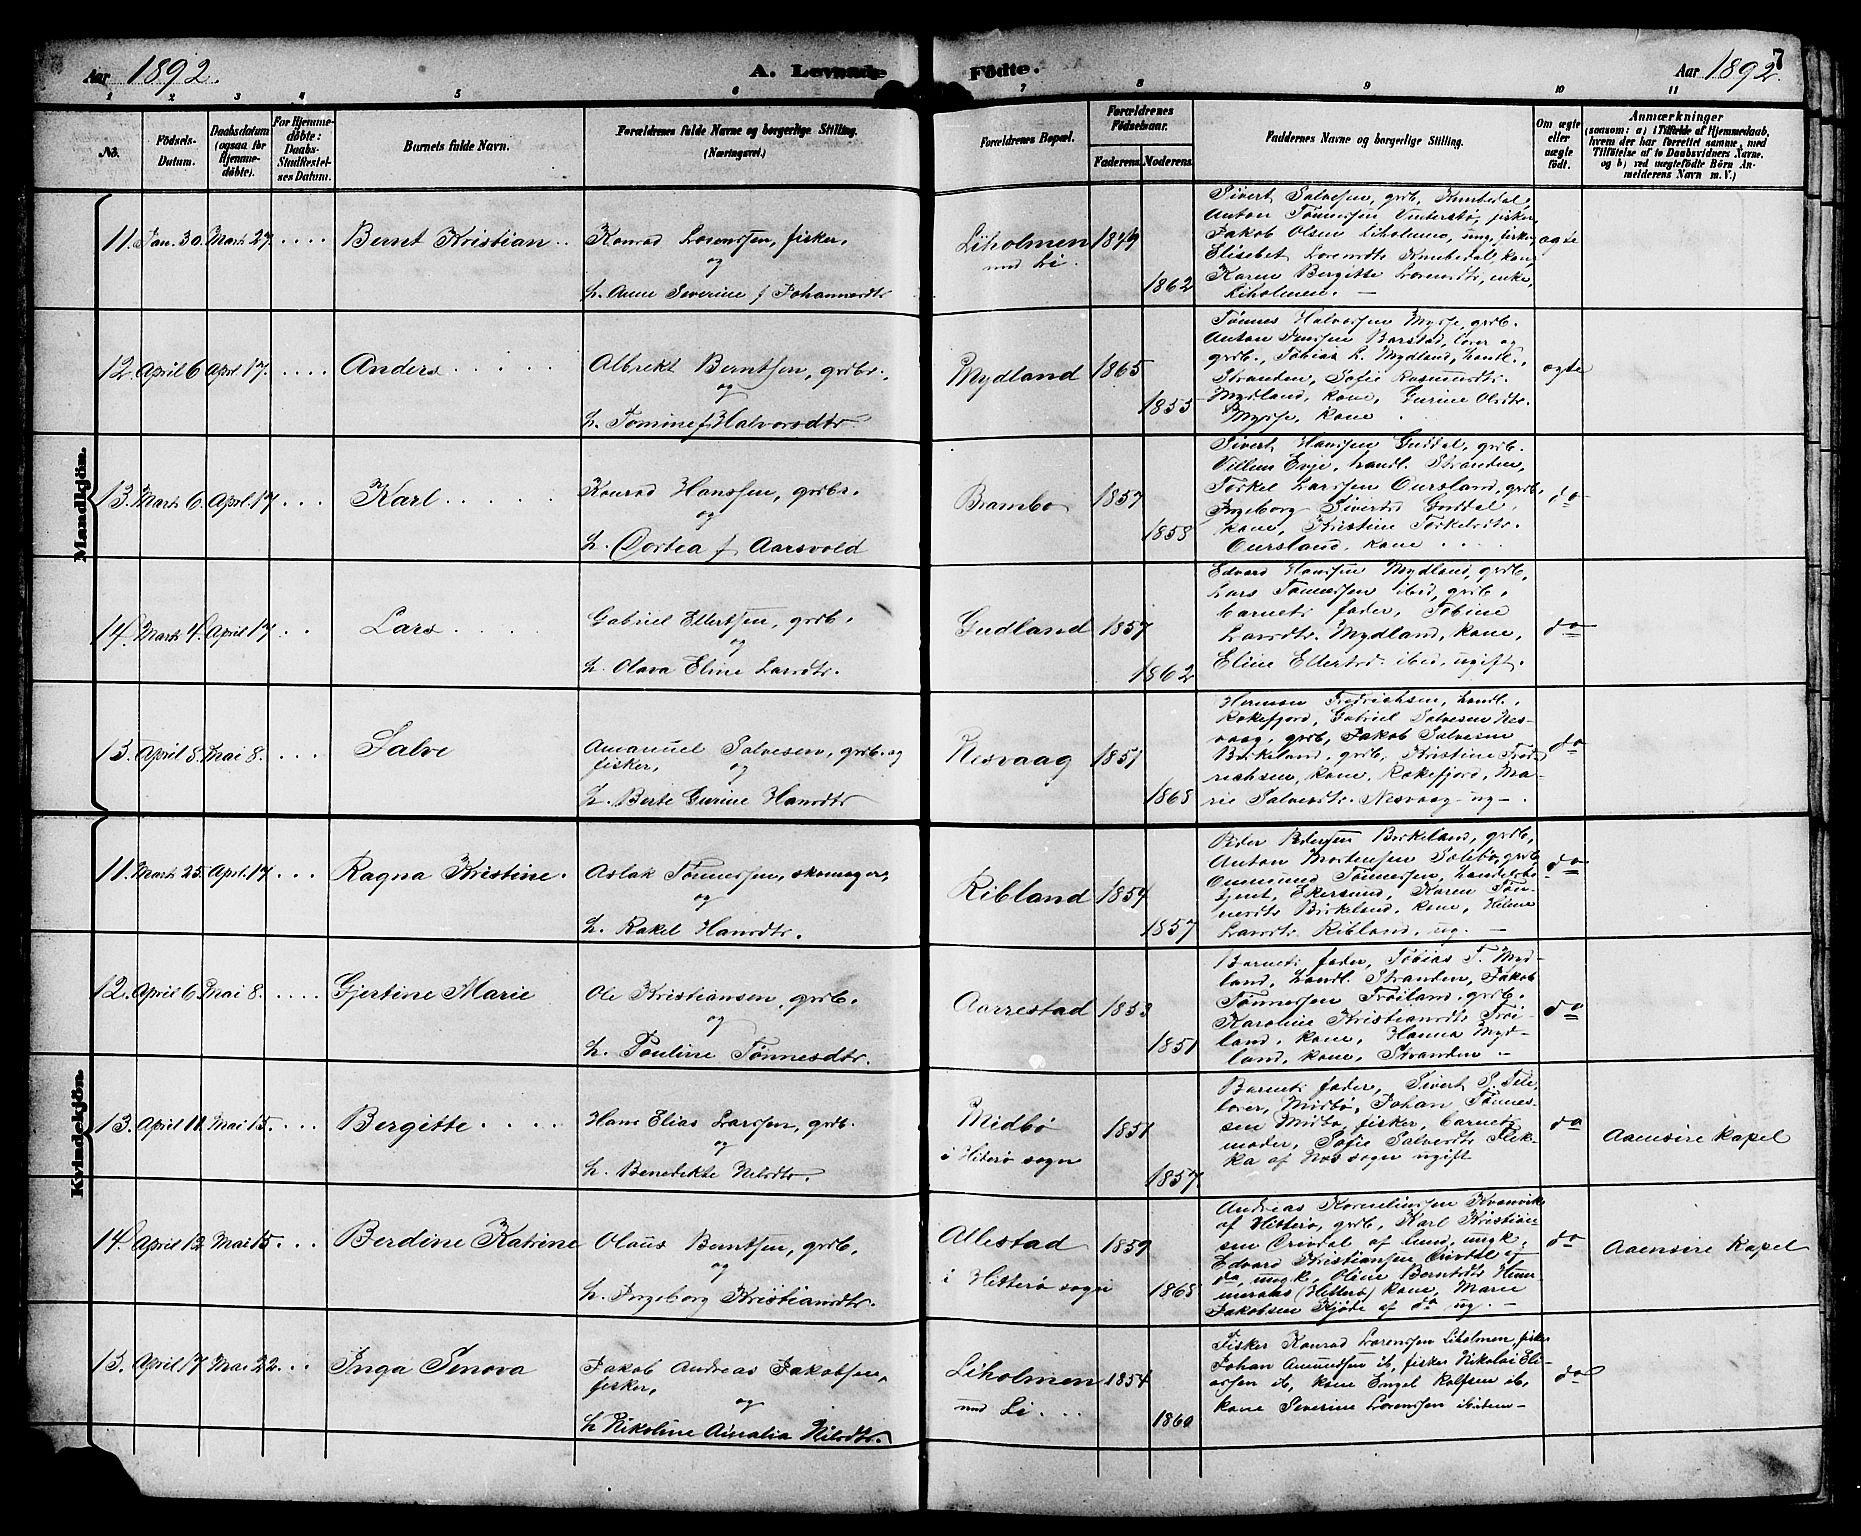 Aar 1892. A. Levende Födte. Aar 1892. 7
1 2 3 4 5 6 7 8 9 10 11
No.
Födsels-Datum.
Daabsdatum (ogsaa for Hjemmedøbte).
For Hjemmedöbte: Daabs-Stadfæstelses Datum.
Barnets fulde Navn.
Forældrenes fulde Navne og borgerlige Stilling. (Næringsvei.)
Forældrenes Bopæl.
Forældrenes Födselsaar.
Faderens. Moderens.
Faddernes Navne og borgerlige Stilling.
Om ægte eller uægte födt.
Anmærkninger
(saasom: a) i Tilfælde af Hjemmedaab,
hvem der har forrettet samme, med
Tilföielse af to Daabsvidners Navne.
og b) ved uægtefödte Börn An-
melderens Navn m. V.)
Mandkjön.
11. Jan. 30. Marts 27. .... Bernt Kristian ..
Konrad Lorentsen, fisker,
og
h. Anne Severine f Johannesdtr
Liholmen
und Li.
1849
1862
Sivert Salvesen, grdb,
Anton Tønnessen Vinterstø, fisker,
Jakob Olsen Liholmen, ung. fisker,
Elisebet Lorentsdtr kone,
Karen Bergitte Lorentsdtr, enke,
Liholmen. —
ægte
12. April 6 April 17. .... Anders .....
Albrekt Berntsen, grdbr.,
og
h. Tomine f Halvorsdtr.
Mydland
1865
1855
Tønnes Halvorsen Mysse, grdb.
Anton Barstad, lærer og
grdb., Tobias T. Mydland, handl.,
Stranden, Sofie Rasmusdtr.
Mydland, kone, Gurine Olsdtr.
Mysse, kone .
ægte
13. Marts 6. April 17 ... Karl .....
Konrad Hanssen, grdbr.
og
h. Dortea f. Aarsvold
Brambo
1857
1858
Sivert Hanssen Guddal, grdb.
Villem Evje, handl. Stranden,
Torkel Larssen Oursland, grdb.
Ingeborg Sivertsd Guddal,
kone, Kristine Torkelsdtr.
Oursland, kone ....
do
14. Marts 4. April 17 ... Lars ....
Gabriel Ellertsen, grdb.
og
h. Olava Eline Larsdtr.
Gudland
1857
1862
Edvard Hanssen Mydland, grdb,
Lars Tønnessen ibid, grdb.,
barnets fader, Tobine
Larsdtr. Mydland, kone,
Eline Ellertsd. ibid, ugift.
do
15. April 8. Mai 8. ... Salve
Amanuel Salvesen, grdb. og
fisker, og
h. Berte Gurine Hansdtr
Nesvaag
1851
1865
Herman Fredrichsen, handl.
Rekefjord, Gabriel Salvesen Nes-
vaag, grdb, Jakob Salvesen
Birkeland, grdb, Kristine Fred-
richsen, kone, Rekefjord, Ma-
rie Salvesdtr. Nesvaag - ug - .
do
Kvindekjön.
11. Marts 25. April 17 ... Ragna Kristine.
Aslak Tønnessen, skomager,
og
h. Rakel Hansdtr.
Ribland
1854
1857
Peder Pedersen Birkeland, grdb,
Anton Mortensen Solebø, grdb
Ommund Tønnessen, handelsbe-
tjent, Ekersund, Karen Tøn-
nesdtr Birkeland, kone, Helene
Larsdtr. Ribland, ug. —
do
12. April 6. Mai 8. .... Gjertine Marie
Ole Kristiansen, grdb.
og
h. Pauline Tønnesdtr.
Aarrestad
1853
1851
Barnets fader, Tobias T. Myd-
land, handl. Stranden, Jakob
Tønnessen Trøiland, grdb.
Karoline Kristiansdtr Trøi-
land, kone, Hanna Myd-
land, kone, Stranden —
do
13. April 11. Mai 15. .... Bergitte ....
Hans Elias Larssen, grdb.
og
h. Benedikte Nilsdtr.
Midbø
i Hiterø sogn
1851
1857
Barnets fader, Sivert S.
lærer, Midbø, Johan Tønnes-
sen Midbø, fisker, barnets
moder, Sofie Salvesdtr Flik-
ka af Nes sogn ugift
do
Aaensire kapel
14. April 12. Mai 15. ... Berdine Katrine
Olaus Berntsen, grdb,
og
h. Ingeborg Kristiansdtr.
Allestad
i Hitterø sogn
1859
1865
Andreas Korneliussen Kvanvik
af Hitterø, grdb, Karl Kristian-
sen af Lund, ungk,
Edvard Kristiansen af
do, ungk, Oline Berntsdtr
(Hitterø) kone, Marie
Jakobsen af do ug. —
do
Aaensire Kapel
15. April 17 Mai 22. ... Inga Senova
Jakob Andreas Jakobsen,
fisker,
og
h. Nikoline Amalia Nilsdtr.
Liholmen
und Li ...
1854
1860
Fisker Konrad Lorentssen Liholmen, fisker
Johan Amundsen ib, fisker Nikolai Eli-
assen ib, kone Engel Rolfsen ib,
kone Severine Lorentssen ibidem —
do